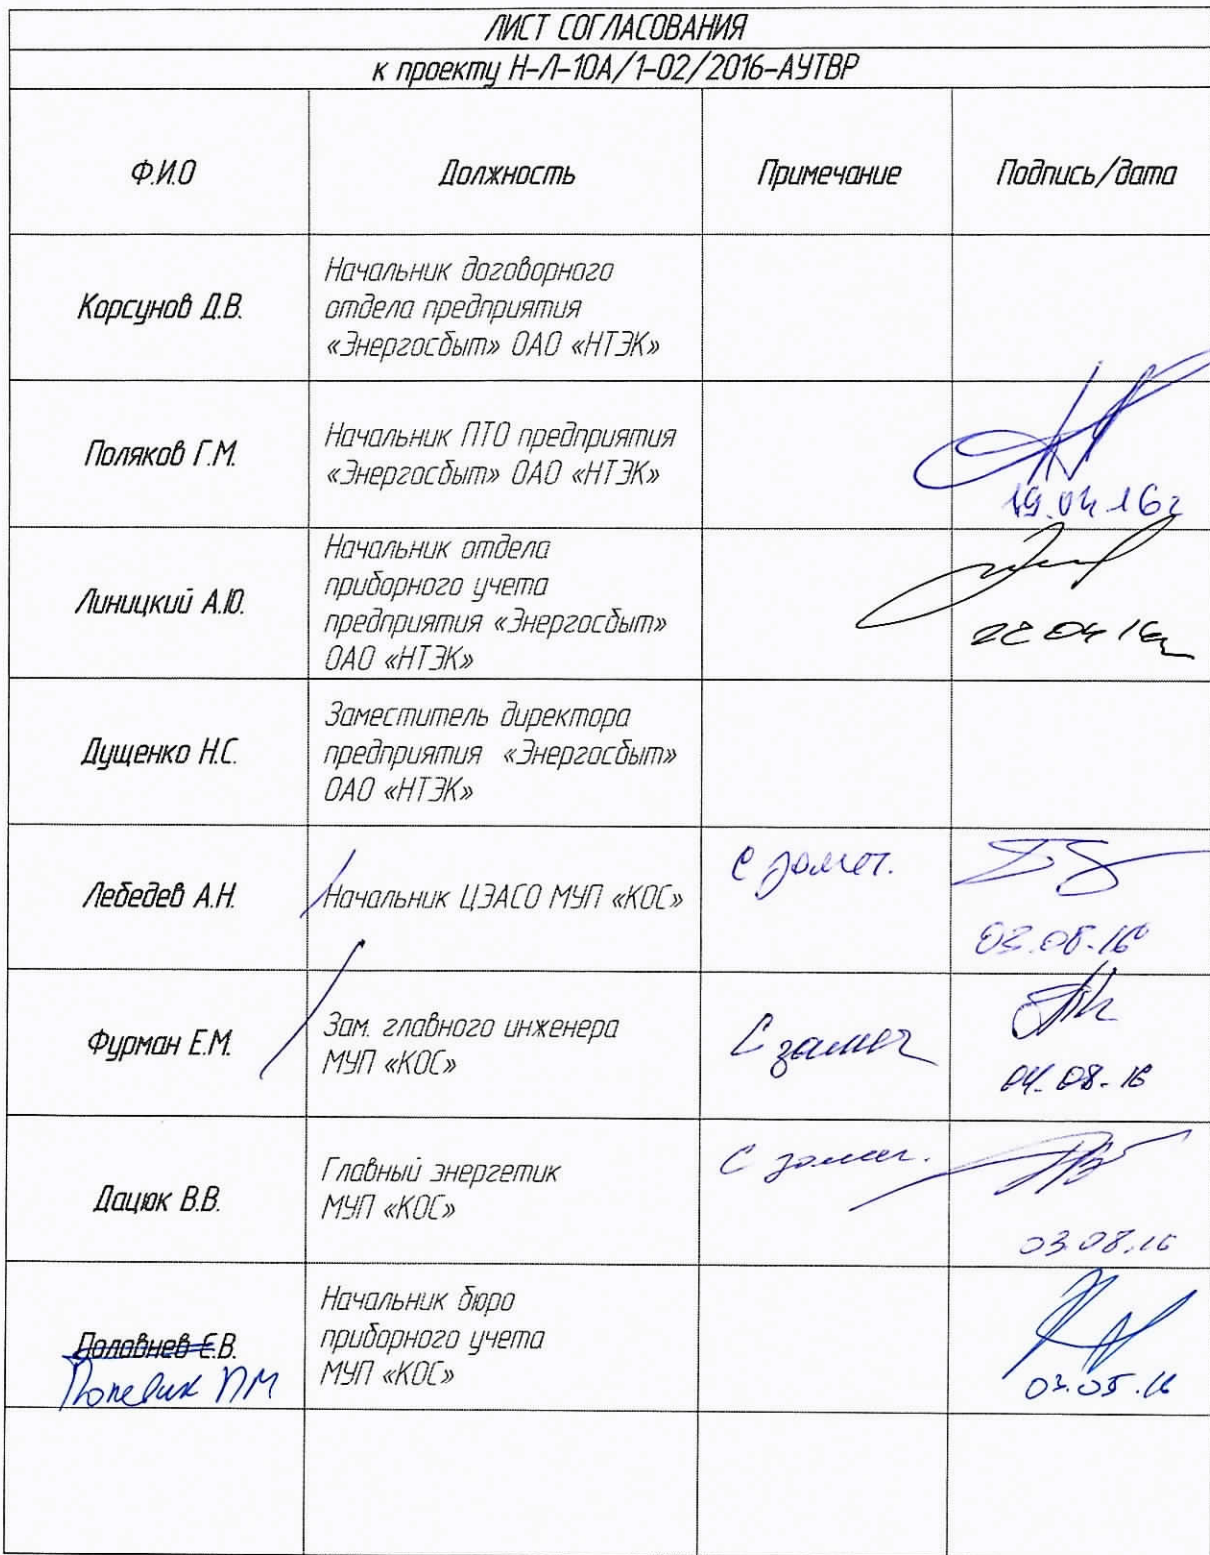 ЛИСТ СОГЛАСОВАНИЯ
к проекту Н-Л-10А/1-02/2016-АУТВР
Ф.И.О Должность Примечание Подпись/дата
Корсунов Д.В.
Начальник договорного
отдела предприятия
«Энергосбыт» ОАО «НТЭК»
Поляков Г.М.
Начальник ПТО предприятия
«Энергосбыт» ОАО «НТЭК»
19.04.16г
Линицкий А.Ю.
Начальник отдела
приборного учета
предприятия «Энергосбыт»
ОАО «НТЭК»
22 04 16г
Дущенко Н.С.
Заместитель директора
предприятия «Энергосбыт»
ОАО «НТЭК»
Лебедев А.Н.
Начальник ЦЭАСО МУП «КОС»
С замеч.
Фурман Е.М.
Зам. главного инженера
МУП «КОС»
С замеч
04.08.16
Дацюк В.В.
Главный энергетик
МУП «КОС»
С замеч.
03.08.16
Половнев Е.В.
ПМ
Начальник бюро
приборного учета
МУП «КОС»